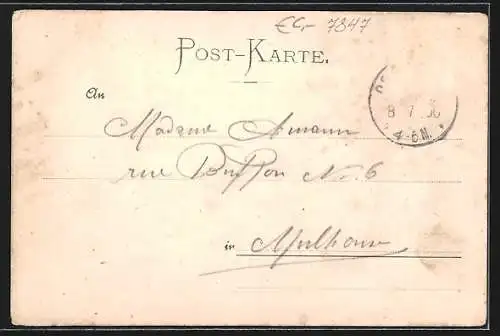 7847
POST-KARTE.
An
Madame Amann
rue Buffon No. 6
in Mulhouse
8 7
4-5 N.